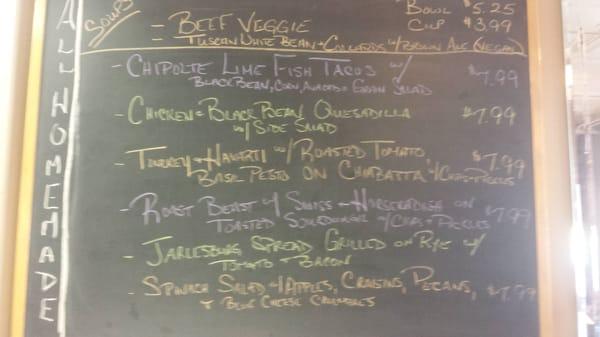 ALL HOMEMADE
SOUPS
- BEEF VEGGIE
BOWL $5.25
CUP $3.99
- TUSCAN WHITE BEAN + COLLARDS W/ BROWN ALE (VEGAN)
- CHIPOLTE LIME FISH TACOS W/ $7.99
BLACK BEAN, CORN, AVOCADO + GRAIN SALAD
- CHICKEN + BLACK BEAN QUESADILLA $7.99
W/ SIDE SALAD
- TURKEY + HAVARTI W/ ROASTED TOMATO, $7.99
BASIL PESTO ON CHIABATTA W/ CHIPS + PICKLES
- ROAST BEAST W/ SWISS + HORSERADISH ON $7.99
TOASTED SOURDOUGH W/ CHIPS + PICKLES
- JARLSBURG SPREAD GRILLED ON RYE W/
TOMATO + BACON
- SPINACH SALAD W/ APPLES, CRAISINS, PECANS, $7.99
+ BLUE CHEESE CRUMBLES